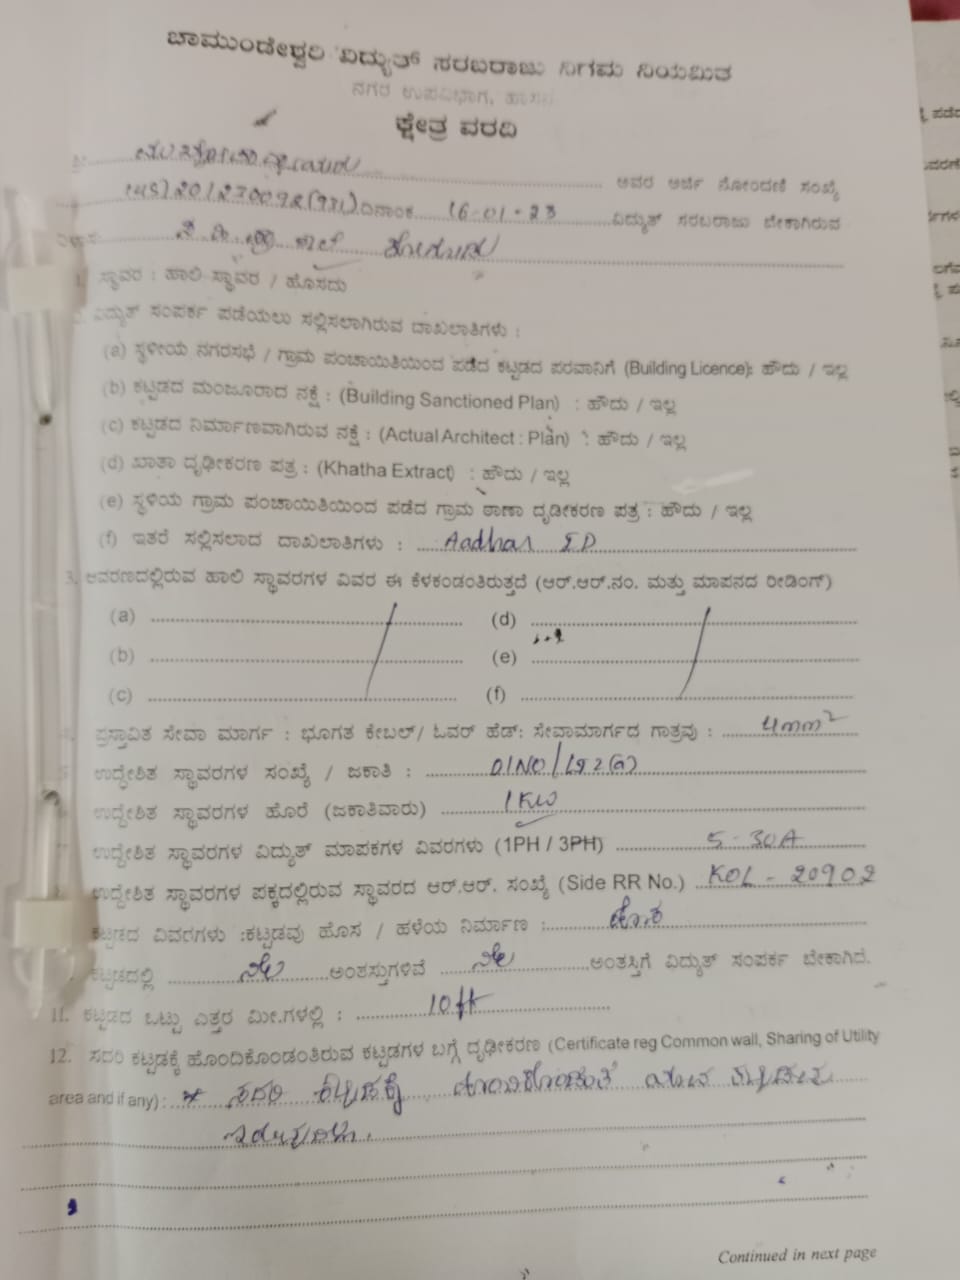 ಚಾಮುಂಡೇಶ್ವರಿ ವಿದ್ಯುತ್ ಸರಬರಾಜು ನಿಗಮ ನಿಯಮಿತ
ನಗರ ಉಪವಿಭಾಗ, ಹಾಸನ
ಕ್ಷೇತ್ರ ವರದಿ
ಅವರ ಅರ್ಜಿ ನೋಂದಣಿ ಸಂಖ್ಯೆ
ದಿನಾಂಕ 16-01-23 ವಿದ್ಯುತ್ ಸರಬರಾಜು ಬೇಕಾಗಿರುವ
1. ಸ್ಥಾವರ : ಹಾಲಿ ಸ್ಥಾವರ / ಹೊಸದು
ವಿದ್ಯುತ್ ಸಂಪರ್ಕ ಪಡೆಯಲು ಸಲ್ಲಿಸಲಾಗಿರುವ ದಾಖಲಾತಿಗಳು :
(a) ಸ್ಥಳೀಯ ನಗರಸಭೆ / ಗ್ರಾಮ ಪಂಚಾಯಿತಿಯಿಂದ ಪಡೆದ ಕಟ್ಟಡದ ಪರವಾನಿಗೆ (Building Licence): ಹೌದು / ಇಲ್ಲ
(b) ಕಟ್ಟಡದ ಮಂಜೂರಾದ ನಕ್ಷೆ : (Building Sanctioned Plan) : ಹೌದು / ಇಲ್ಲ
(c) ಕಟ್ಟಡದ ನಿರ್ಮಾಣವಾಗಿರುವ ನಕ್ಷೆ : (Actual Architect : Plan) : ಹೌದು / ಇಲ್ಲ
(d) ಖಾತಾ ದೃಢೀಕರಣ ಪತ್ರ : (Khatha Extract) : ಹೌದು / ಇಲ್ಲ
(e) ಸ್ಥಳಿಯ ಗ್ರಾಮ ಪಂಚಾಯಿತಿಯಿಂದ ಪಡೆದ ಗ್ರಾಮ ಠಾಣಾ ದೃಡೀಕರಣ ಪತ್ರ : ಹೌದು / ಇಲ್ಲ
(f) ಇತರೆ ಸಲ್ಲಿಸಲಾದ ದಾಖಲಾತಿಗಳು : Aadhar ID
3. ಆವರಣದಲ್ಲಿರುವ ಹಾಲಿ ಸ್ಥಾವರಗಳ ವಿವರ ಈ ಕೆಳಕಂಡಂತಿರುತ್ತದೆ (ಆರ್.ಆರ್.ನಂ. ಮತ್ತು ಮಾಪನದ ರೀಡಿಂಗ್)
(a) (d)
(b) (e)
(c) (f)
ಪ್ರಸ್ತಾವಿತ ಸೇವಾ ಮಾರ್ಗ : ಭೂಗತ ಕೇಬಲ್/ ಓವರ್ ಹೆಡ್: ಸೇವಾಮಾರ್ಗದ ಗಾತ್ರವು : 4mm²
ಉದ್ದೇಶಿತ ಸ್ಥಾವರಗಳ ಸಂಖ್ಯೆ / ಜಕಾತಿ : 01NO/
ಉದ್ದೇಶಿತ ಸ್ಥಾವರಗಳ ಹೊರೆ (ಜಕಾತಿವಾರು) 1KW
ಉದ್ದೇಶಿತ ಸ್ಥಾವರಗಳ ವಿದ್ಯುತ್ ಮಾಪಕಗಳ ವಿವರಗಳು (1PH / 3PH) 5-30A
ಉದ್ದೇಶಿತ ಸ್ಥಾವರಗಳ ಪಕ್ಕದಲ್ಲಿರುವ ಸ್ಥಾವರದ ಆರ್.ಆರ್. ಸಂಖ್ಯೆ (Side RR No.) KOL - 20902
ಕಟ್ಟಡದ ವಿವರಗಳು :ಕಟ್ಟಡವು ಹೊಸ / ಹಳೆಯ ನಿರ್ಮಾಣ : ಹೊಸ
ಕಟ್ಟಡದಲ್ಲಿ ನೆಲ ಅಂತಸ್ತುಗಳಿವೆ ನೆಲ ಅಂತಸ್ತಿಗೆ ವಿದ್ಯುತ್ ಸಂಪರ್ಕ ಬೇಕಾಗಿದೆ.
11. ಕಟ್ಟಡದ ಒಟ್ಟು ಎತ್ತರ ಮೀ.ಗಳಲ್ಲಿ : 10ft
12. ಸದರಿ ಕಟ್ಟಡಕ್ಕೆ ಹೊಂದಿಕೊಂಡಂತಿರುವ ಕಟ್ಟಡಗಳ ಬಗ್ಗೆ ದೃಢೀಕರಣ (Certificate reg Common wall, Sharing of Utility
area and if any) : * ಸದರಿ ಕಟ್ಟಡಕ್ಕೆ ಹೊಂದಿಕೊಂಡಂತೆ ಯಾವ ಕಟ್ಟಡವೂ
ಇರುವುದಿಲ್ಲ.
Continued in next page